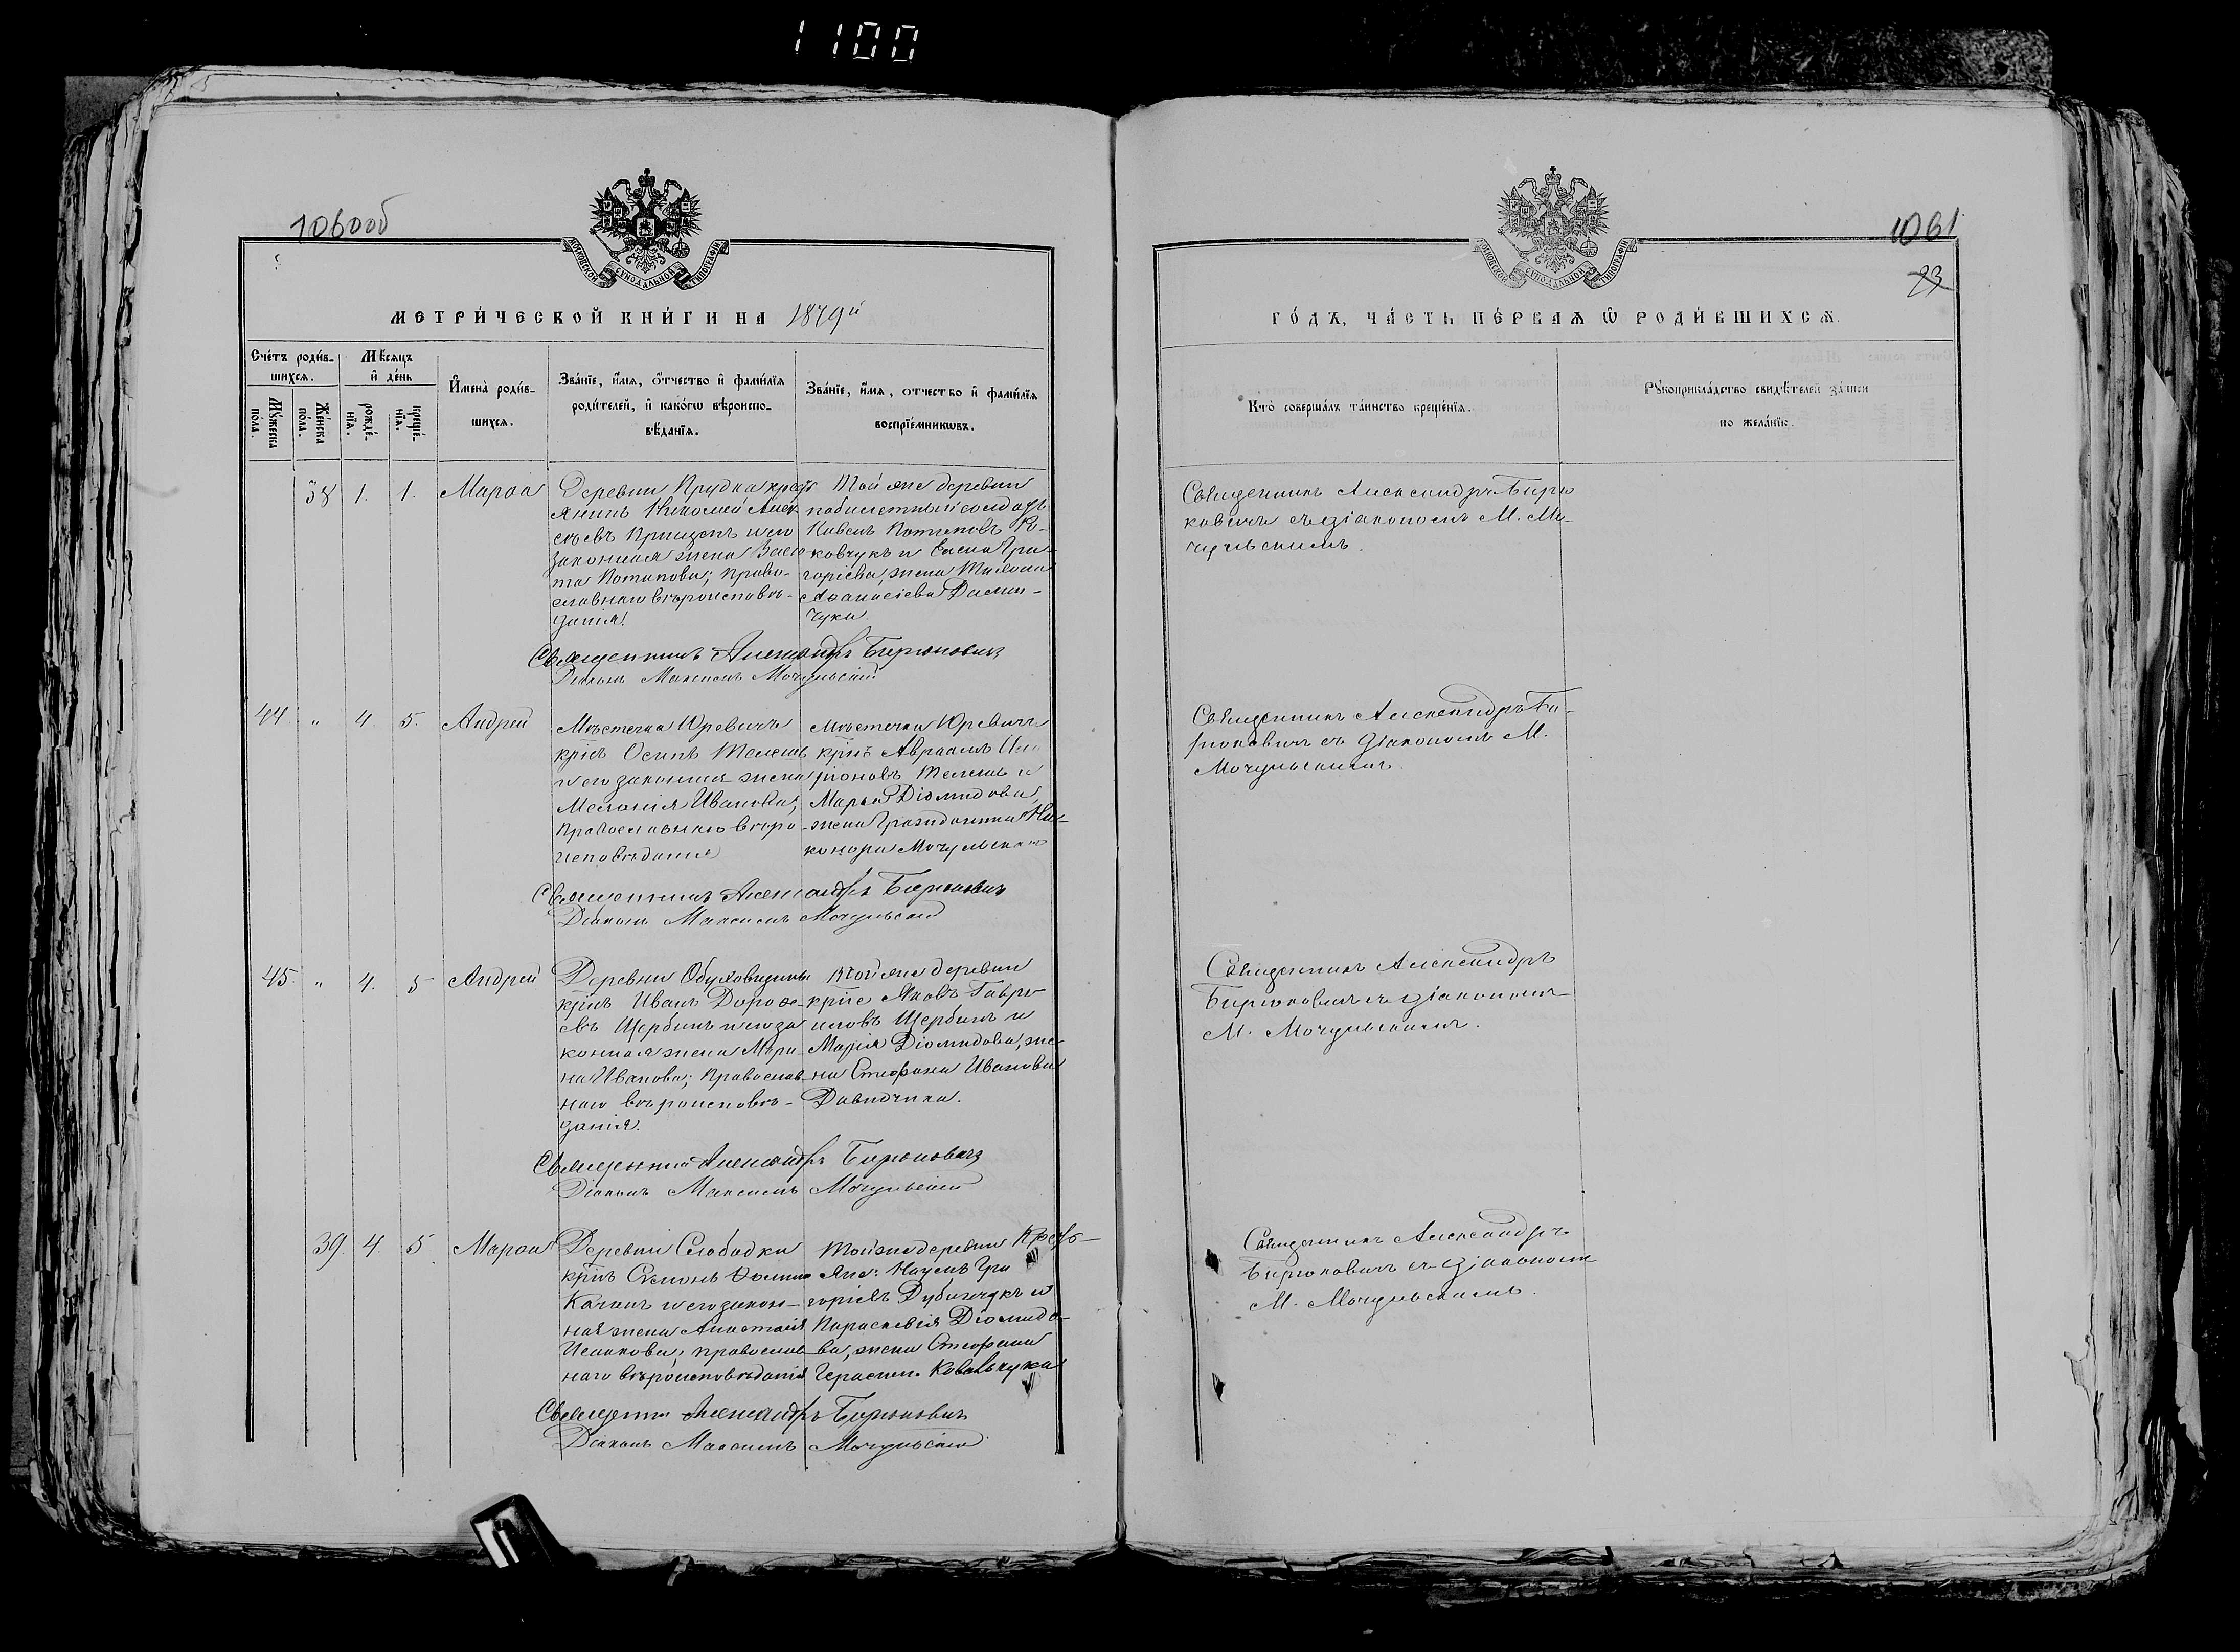 1100
1060об
МОСКОВСКОЙ СѴНОДАЛЬНОЙ ТИПОГРАФІИ
МЕТРИ́ЧЕСКОЙ КНИ́ГИ НА 1879й
Сче́тъ роди́в-
шихся.
Мѣ́сяцъ
и҆ де́нь
Му́жеска
по́ла.
Же́нска
по́ла.
рожде́-
нїѧ.
креще́-
нїѧ.
И҆мена̀ роди́в-
шихся.
Зва́нїе, и҆́мѧ, ѻ҆́тчество и҆ фами́лїѧ
роди́телей, и҆ како́гѡ вѣроиспо-
вѣ́данїѧ.
Зва́нїе, и҆́мѧ, отчество и҆ фами́лїѧ
воспрїе́мникѡвъ.
38 1. 1. Марѳа
Деревни Прудка крест
янинъ Николай Алек
сѣевъ и его
законная жена
та Потапова; право-
славнаго вѣроисповѣ-
данія.
Той же деревни
побилетный солдатъ
Павелъ Потаповъ Ко-
ковчукъ и Елена Гри-
горіева, жена
Аѳанасіева Дымин-
чука.
Священникъ Александръ Бирюковичъ
Діаконъ Максимъ Мочульскій
44. " 4. 5. Андрей
Мѣстечка Юревичъ
крнъ Осипъ Телешъ
и его законная жена
Меланія Иванова;
Православнаго вѣро
исповѣданія
Мѣстечка Юревичъ
крнъ Авраамъ Ила
ріоновъ Телешъ и
Марья Діомидова,
жена гражданина Ни-
конора Мочульскаго
Священникъ Александръ Бирюковичъ
Діаконъ Максимъ Мочульскій
45. " 4. 5 Андрей
Деревни Обуховщины
крнъ Иванъ Дороѳе-
евъ Щербинъ и его за
конная жена Мари-
на Иванова; Православ-
наго вѣроисповѣ-
данія.
Той же деревни
крне Яковъ Гаври-
иловъ Щербинъ и
Марія Діомидова, же-
на Стефана Иванова
Давидчика.
Священникъ Александръ Бирюковичъ
Діаконъ Максимъ Мочульскій
39. 4. 5. Марѳа
Деревни Слободки
крнъ Семенъ Ѳомин
Качанъ и его закон-
ная жена Анастасія
Исакова; православ
наго вѣроисповѣданія
Той же деревни Кресть-
яне: Наумъ Гри
горіевъ Дубинчукъ и
Параскевія Діомидо-
ва, жена Стефана
Герасим. Ковальчука
Священникъ Александръ Бирюковичъ
Діаконъ Максимъ Мочульскій
1061
23
МОСКОВСКОЙ СѴНОДАЛЬНОЙ ТИПОГРАФІИ
ГО́ДЪ, ЧА́СТЬ ПЕ́РВАѦ Ѡ҆ РОДИ́ВШИХСѦ.
Кто̀ соверша́лъ та́инство креще́нїѧ.
Рꙋкоприкла́дство свидѣ́телей за́писи
по жела́нїю.
Священникъ Александръ Бирю
ковичъ съ діакономъ М. Мо-
чульскимъ.
Священникъ Александръ Би-
рюковичъ съ діакономъ М.
Мочульскимъ.
Священникъ Александръ
Бирюковичъ съ діакономъ
М. Мочульскимъ.
Священникъ Александръ
Бирюковичъ съ діакономъ
М. Мочульскимъ.